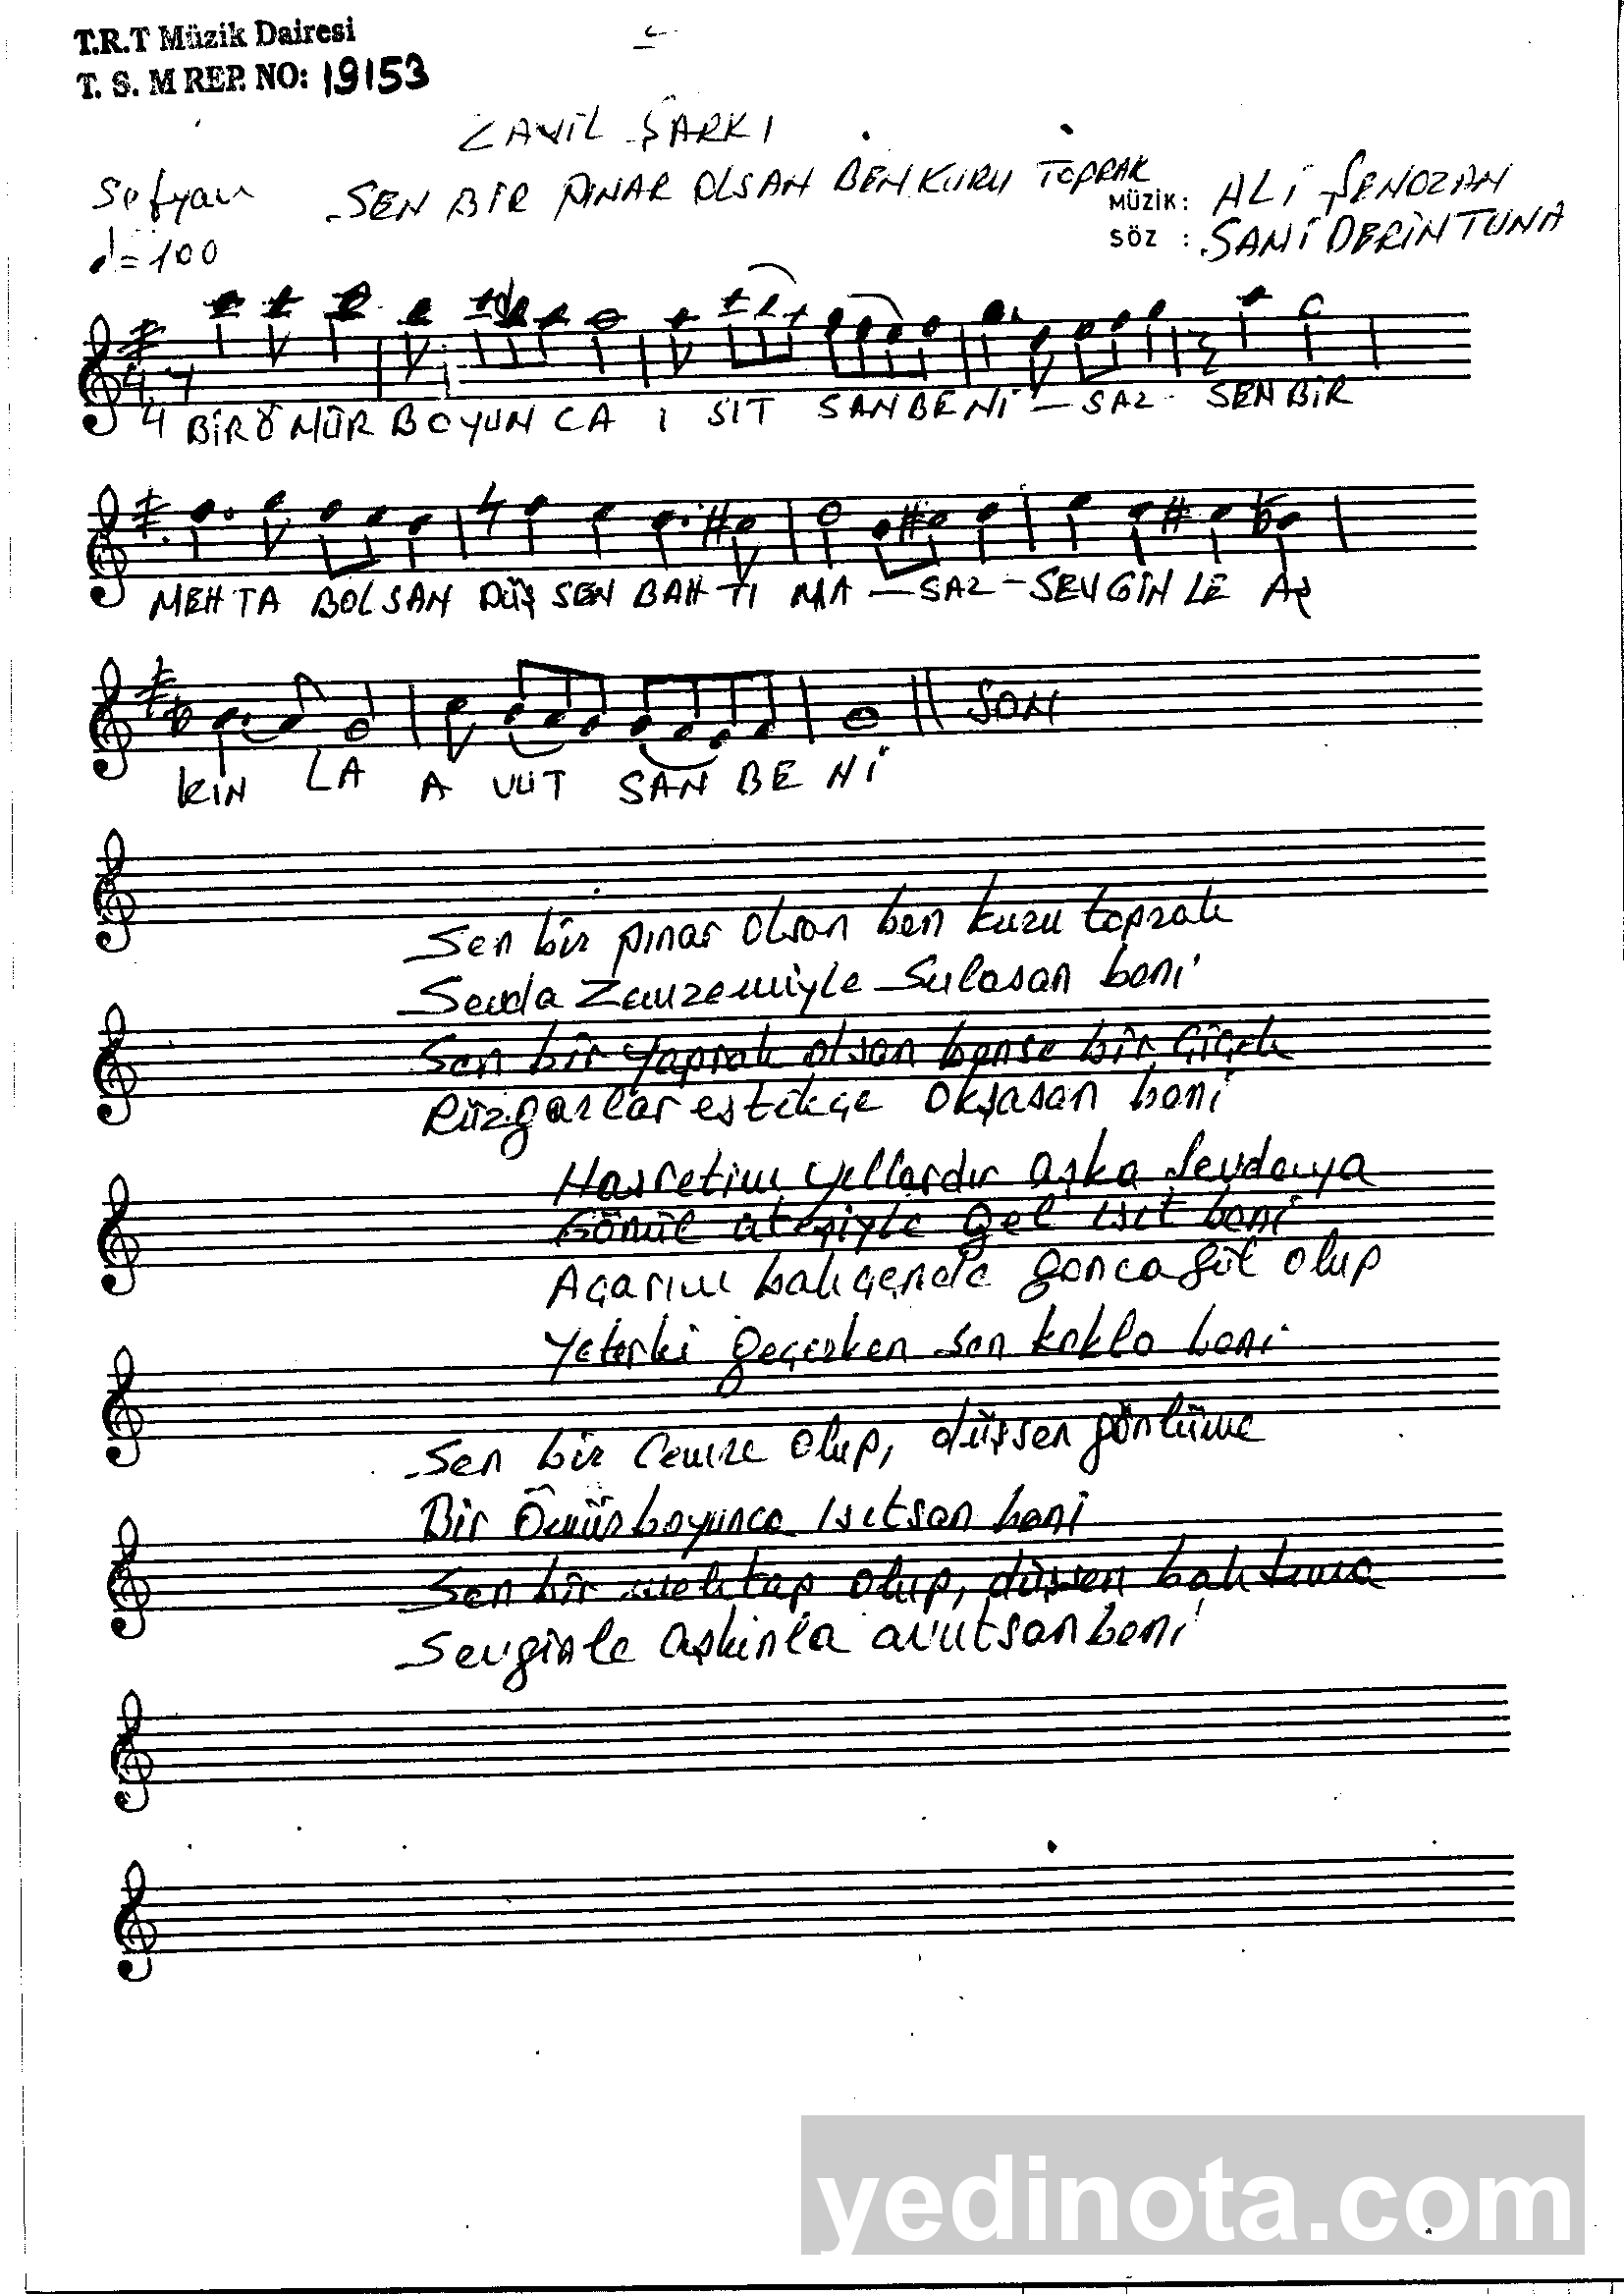 T.R.T Müzik Dairesi
T. S. M REP. NO: 19153
ZAVİL ŞARKI
Sofyan SEN BİR PINAR OLSAN BEN KURU TOPRAK
MÜZİK: ALİ ŞENOZAN
♩=100
SÖZ : SAMİ DERİNTUNA
4 4 BİR ÖMÜR BOYUN CA I SIT SAN BE Nİ — SAZ - SEN BİR
MEH TA BOL SAN DÜŞ SEN BAH TI MA — SAZ — SEV GİN LE AŞ
SON
KIN LA A VUT SAN BE Nİ
Sen bir pınar olsan ben kuru toprak
Sevda Zemzemiyle Sulasan beni
Sen bir yaprak olsan bense bir Çiçek
Rüzgarlar estikçe okşasan beni
Hasretim yıllardır aşka Sevdaya
Gönül ateşiyle gel ısıt beni
Açarım bahçende gonca gül olup
Yeterki geçerken sen kokla beni
Sen bir Cemre olup, düşsen gönlüme
Bir Ömür boyunca ısıtsan beni
Sen bir mehtap olup, düşsen bahtıma
Sevginle aşkınla avutsan beni
yedinota.com